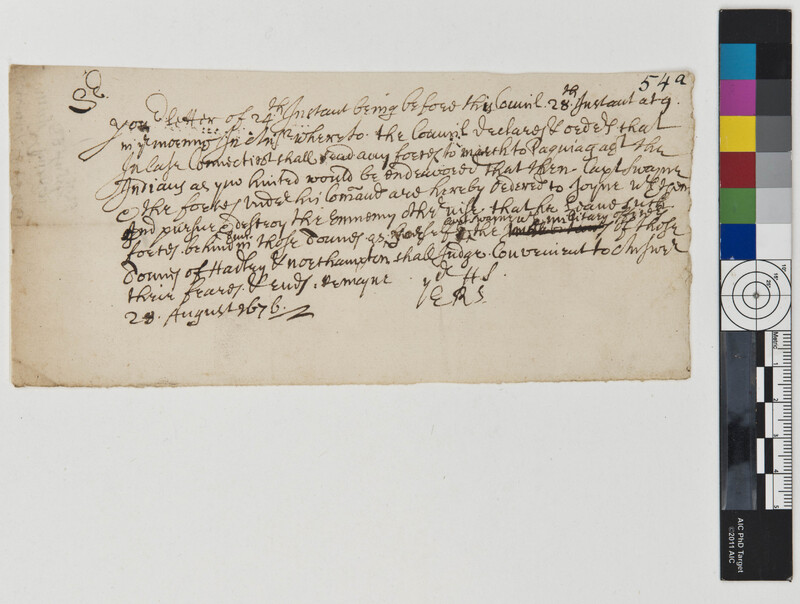 54a
Sr.
Your letter of 24th Instant being before this Council 28th Instant at 9.
in ye morning In Answr whereto the Council declares & orders that
In Case Connecticot shall send any forces to march to Paquiag agt the
Indians as you hinted would be endeavored that then Capt Swayne
& the forces under his Comand are hereby ordered to Joyne wth them
And pursue & destroy the Enemy otherwise that he Leave such
forces behind in those Townes as Capt Swayne wth ye military officers of those
Townes of Hadley & northampton shall Judge Convenient to Answer
their feares & ends. remayne
yor H S.
E R S.
28. August 1676.
AIC PhD Target
©2011 AIC
Metric
1
2
3
4
5